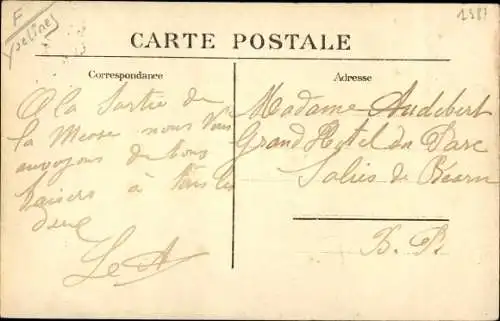 F
Yvelines
1987
CARTE POSTALE
Correspondance
Adresse
A la Sortie de
la Messe nous vous
envoyons de bons
baisers à tous les
deux
Madame Audibert
Grand Hotel du Parc
Salies de Béarn
B. P.